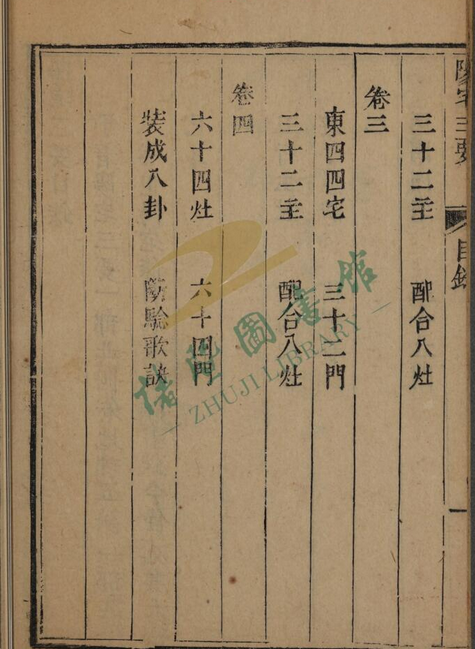 陽宅三要
目錄
一
三十二主 配合八灶
卷三
東四四宅 三十二門
三十二主 配合八灶
卷四
六十四灶 六十四門
裝成八卦 防驗歌訣
諸暨圖書館
ZHUJI LIBRARY